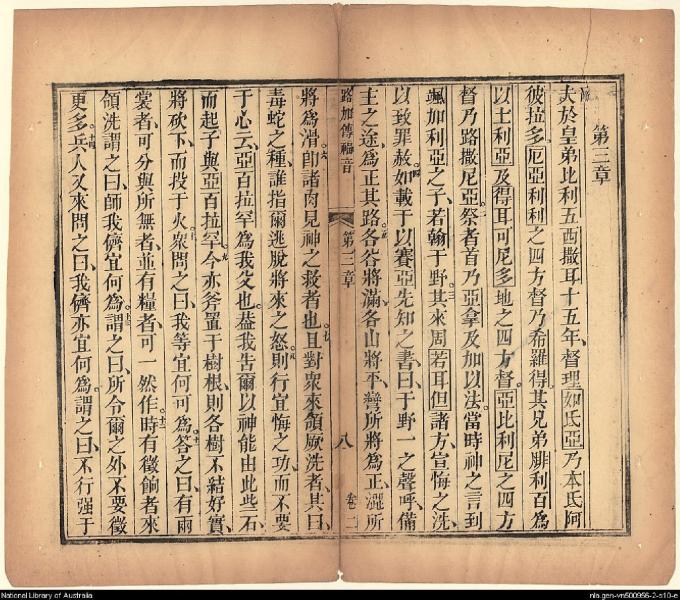 第三章
夫於皇弟比利五西撒耳十五年、督理如氏亞乃本氏阿
彼拉多。厄亞利利之四方督乃希羅得。其兄弟腓利百爲
以土利亞及得耳可尼多地之四方督。亞比利尼之四方
督乃路撒尼亞。祭者首乃亞拿及加以法。當時神之言到
颯加利亞之子、若翰于野。三其來周若耳但諸方、宣悔之洗、
以致罪赦。四如載于以賽亞先知之書、曰、于野一之聲呼、備
主之途、爲正其路。五各谷將滿、各山將平、彎所將爲正、所
路加傳福音 第三章 八 卷二
將爲滑。六卽諸肉見神之救者也。七且對衆來領厥洗者、其曰、
毒蛇之種、誰指爾逃脫將來之怒。八則行宜悔之功、而不要
于心云、亞百拉罕爲我父也。葢我告爾以神能由此些石
而起子與亞百拉罕。九今亦斧置于樹根、則各樹不結好實、
將砍下、而投于火。十衆問之曰、我等宜何可爲。十一答之曰、有兩
裳者、可分與所無者、並有糧者、可一然作。十二時有徵餉者來
領洗、謂之曰、師、我儕宜何爲。十三謂之曰、所令爾之外不要徵
更多。十四兵人又來問之曰、我儕亦宜何爲。謂之曰、不行强于
National Library of Australia
nla.gen-vn500956-2-s10-e